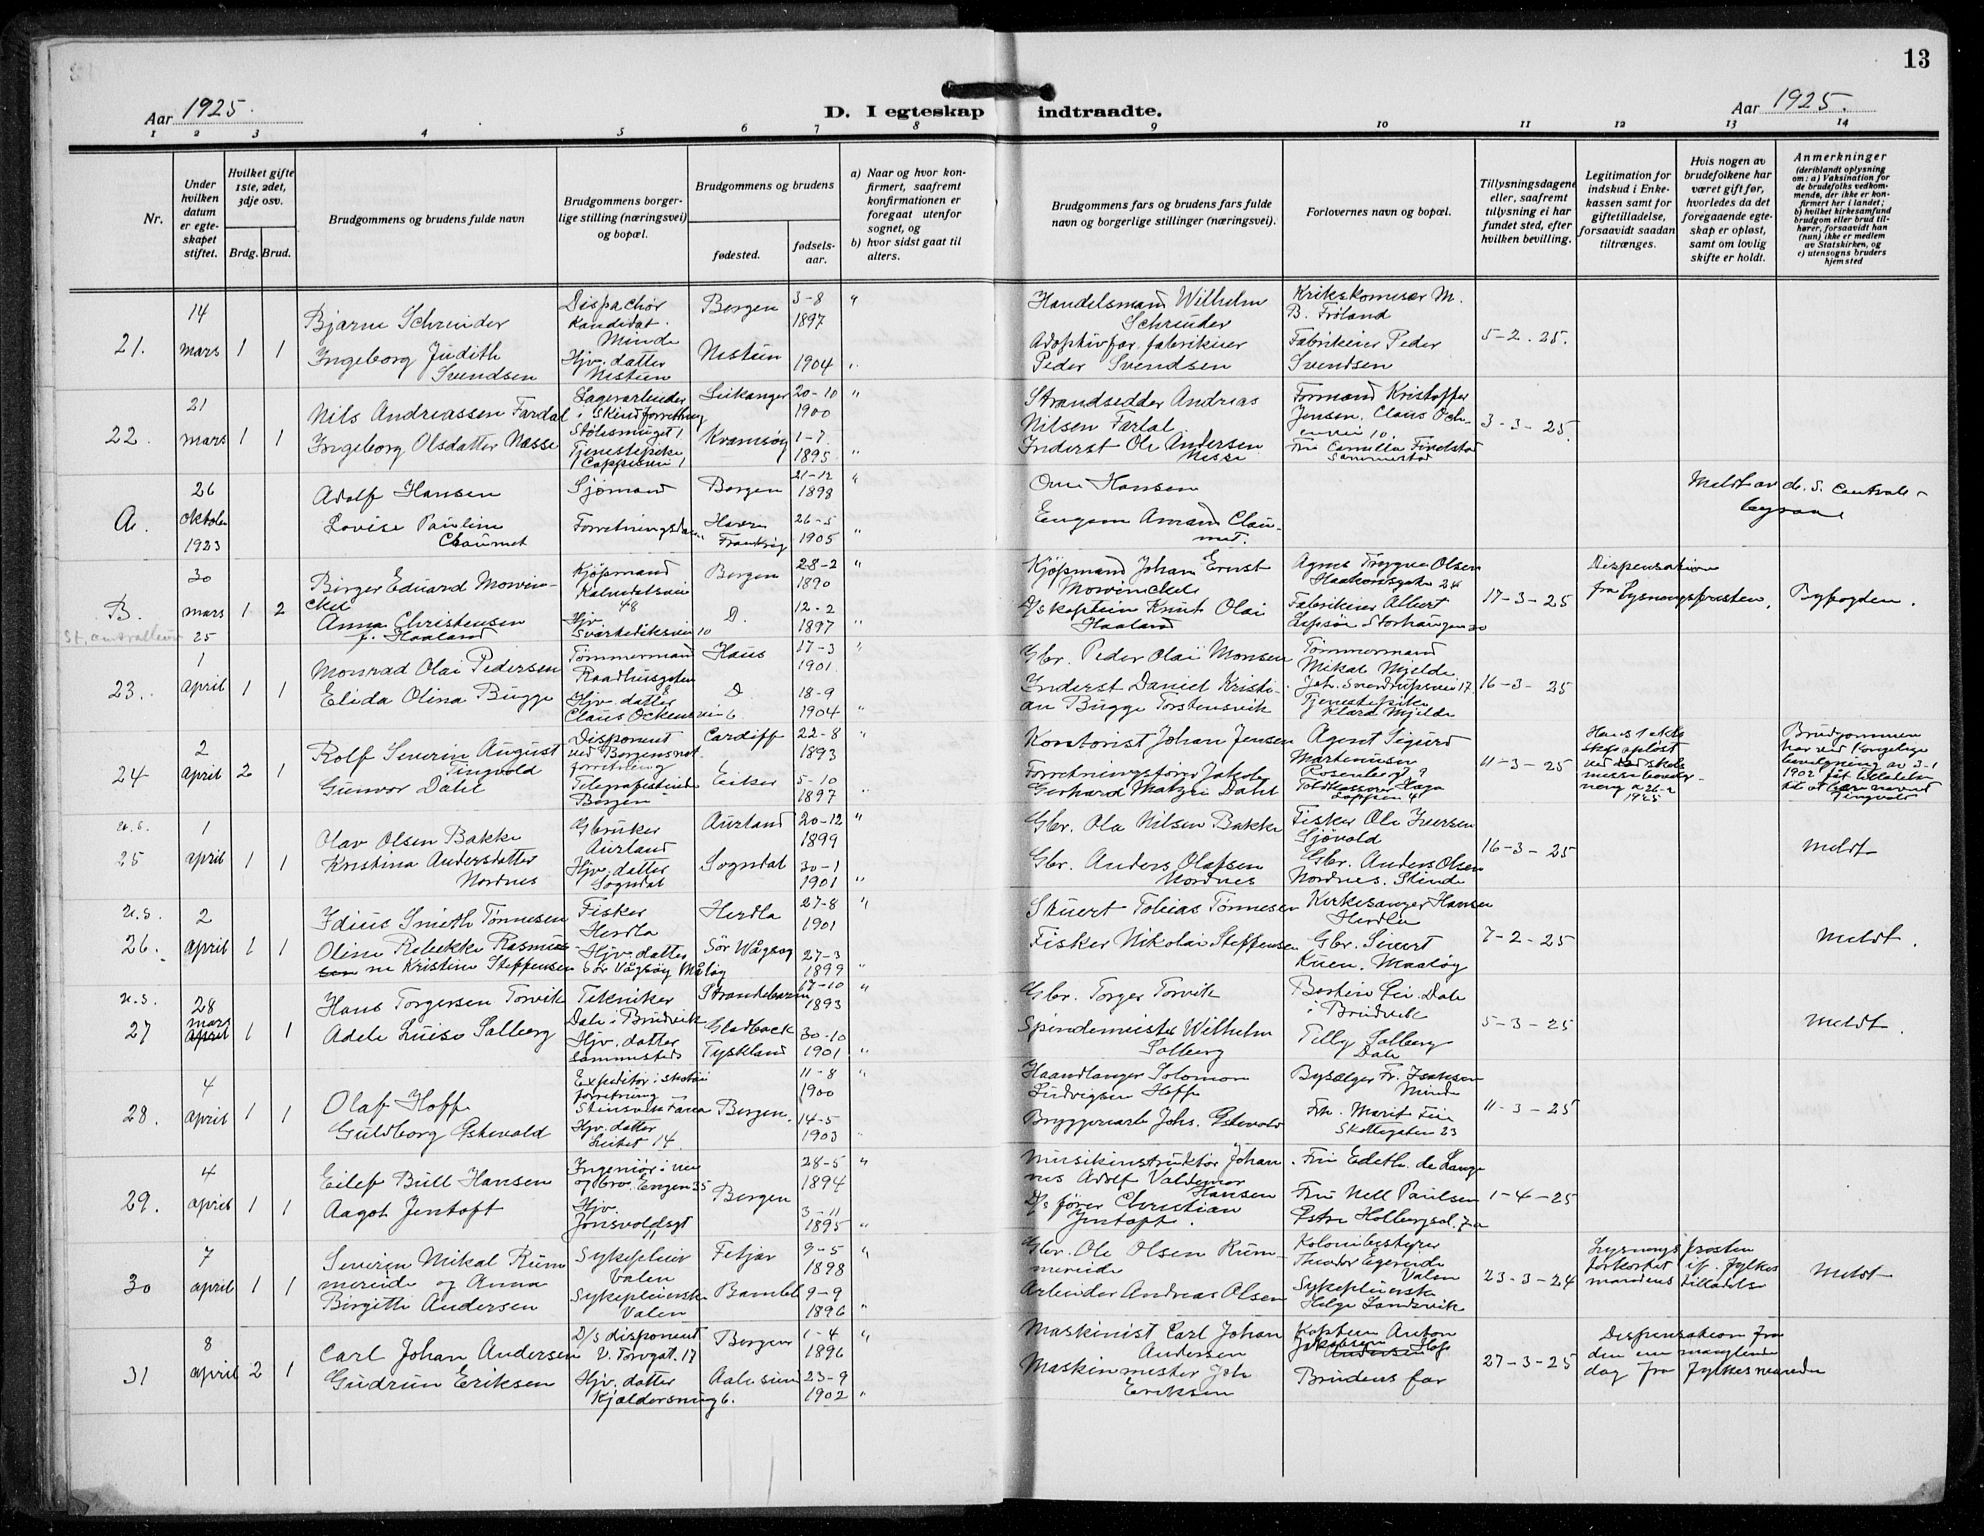 13
Aar 1925.
D. I egteskap indtraadte.
Aar 1925.
1 2 3 4 5 6 7 8 9 10 11 12 13 14
Nr.
Under hvilken datum er egteskapet stiftet.
Hvilket gifte 1ste, 2det, 3dje osv.
Brdg. Brud.
Brudgommens og brudens fulde navn
Brudgommens borgerlige stilling (næringsvei) og bopæl.
Brudgommens og brudens
fødested.
fødselsaar.
a) Naar og hvor konfirmert, saafremt konfirmationen er foregaat utenfor sognet, og
b) hvor sidst gaat til alters.
Brudgommens fars og brudens fars fulde navn og borgerlige stillinger (næringsvei).
Forlovernes navn og bopæl.
Tillysningsdagene eller, saafremt tillysning ei har fundet sted, efter hvilken bevilling.
Legitimation for indskud i Enkekassen samt for giftetilladelse, forsaavidt saadan tiltrænges.
Hvis nogen av brudefolkene har været gift før, hvorledes da det foregaaende egteskap er opløst, samt om lovlig skifte er holdt.
Anmerkninger
(deriblandt oplysning om: a) Vaksination for de brudefolks vedkommende, der ikke er konfirmert her i landet;
b) hvilket kirkesamfund brudgom eller brud tilhører, forsaavidt han (hun) ikke er medlem av Statskirken, og
c) utensogns bruders hjemsted
21. 14 mars 1 1
Bjarne Schreuder
Ingeborg Judith Svendsen
Dispachør Kandidat. Minde
Hjv. datter Nistun
Bergen 3-8 1897 "
Nistun 1904 "
Handelsmand Wilhelm Schreuder
Adoptivfar. fabrikeier Peder Svendsen
Krikskomisær M. B. Frøland
Fabrikeier Peder Svendsen
5-2.25.
22. 21 mars 1 1
Nils Andreassen Fardal
Ingeborg Olsdatter Næsse
Lagerarbeider i Skindforretning Stølesmuget 1
Tjenestepike
Leikanger 20-10 1900 "
Kvamsøy 1-7 1895 "
Strandsidder Andreas Nilsen Farlal
Inderst Ole Andersen Nesse
Formand Kristoffer Jensen, Claus Ockensvei 10.
Fru Camilla Findstad Sammested
3-3-25.
A. 26 oktober 1923
Adolf Hansen
Lovise Pauline Chaumet
Sjømand
Forretningsdame
Bergen 21-12 1898 "
Havre Frankrig 26-5 1905 "
Hansen
Eugen Amand Chaumet.
Meldt av d. S. Centralbyraa
B. 30 mars 25 1 2
St. centralbyr
Birger Eduard Mowinckel
Anna Christensen f. Haaland
Kjøpmand Kalvedalsvei 48
Hjv. Svartediksvei 10
Bergen 28-2 1890 "
D. 12-2 1897 "
Kjøpmand Johan Ernst Mowinckel
D/s kaptein Knut Olai Haaland
Agnes Trygve Olsen Haakonsgaten 24
Fabrikeier Albert Storhaugen 20
17-3-25
Dispensation fra lysningsfristen, Byfogden.
23. 1 april 1 1
Monrad Olai Pedersen
Elida Olina Bugge
Tømmermand Raadhusgaten
Hjv. datter Claus Ockensvei 6.
Haus 17-3 1901 "
D 18-9 1904 "
Gbr. Peder Olai Monsen
Inderst Daniel Kristian Bugge Torstensvik
Tømmermand Mikal Mjelde Joh. Sverdrupsvei 17.
Tjenestepike Klara Mjelde
16-3-25
24 2 april 2 1
Rolf Severin August Tingvold
Gunvor Dahl
Disponent ved Bergensnot. forretning
Telegrafistinde Bergen
Cardiff 22-8 1893
Eiker 5-10 1897 "
Kontorist Johan Jensen
Forretningsfører Jakob Gerhard Matzei Dahl
Agent Sigurd Martinusen Rosenbergt 9
Toldkasserer Haga 4
11-3-25
Hans 1 ekteskap opløst ved skilsmissebevilgning a 26-2 1925
Brudgommen har ved Kongelige bevilgning av 3-1 1902 fåt tilladelse til at bære navnet Tingvold
25 u.s. 1 april 1 1
Olav Olsen Bakke
Kristina Andersdatter Nordnes
Gbruker Aurland
Hjv. datter Sogndal
Aurland 20-12 1899
Sogndal 30-1 1901 "
Gbr. Ola Nilsen Bakke
Gbr. Anders Olafsen Nordnes
Fisker Ole Iversen Sjøvold
Gbr. Anders Olsen Nordnes. Slinde
16-3-25
Meldt
26. u.s. 2 april 1 1
Idius Smith Tønnesen
Oline Rebekke Rasmine Kristine Steffensen
Fisker Herdla
Hjv. datter Sør Vågsøy Måløy
Herdla 27-8 1901 "
Sør Vågsøy 27-3 1899 "
Skuert Tobias Tønnesen
Fisker Nikolai Steffensen
Kirkesanger Hansen Herdla
Gbr. Sivert Kuen. Maaløy
7-2-25
Meldt.
27 u.s. 28 mars april 1 1
Hans Torgersen Torvik
Adele Luise Solberg
Tekniker Dale i Bruvik
Hjv. datter sammesteds
Strandebarm 17-10 1893 "
Gladback Tyskland 30-10 1901 "
Gbr. Torger Torvik
Spindemester Wilhelm Solberg
Dale i Bruvik
Tilly Solberg Dale
5-3-25
Meldt.
28. 4 april 1 1
Olaf Hoff
Guldborg Østevold
Expeditør i skotøiforretning
Hjv. datter Leitet 14.
Bergen. 11-8 1900 "
14-5 1903 "
Haandlanger Solomon Ludvigsen Hoff
Bryggearb Johs. Østevold
Bysælger Fr. Isaksen Minde
Frk. Marit Skottegaten 23
11-3-25
29. 4 april 1 1
Eilef Bull Hansen
Aagot Jentoft
Ingeniør i vei og bro. Engen 35
Hjv. Jonsvoldsgt 11
Bergen 28-5 1894 "
3-11 1895 "
Musikinstruktør Johannes Adolf Valdemar Hansen
D/s fører Christian Jentoft.
Fru Edeth. de Lange
Fru Nell Paulsen Østre Holbergsal. 7a
1-4-25
30 7 april 1 1
Severin Mikal Rummereide og Anna Birgitte Andersen
Sykepleier Valen
Sykepleierske Valen
Fitjar 9-5 1898 "
Bamble 9-9 1896 "
Gbr. Ole Olsen Rummereide
Arbeider Andreas Olsen
Kolonibestyrer Theodor Egereide Valen
Sykepleierske Helga Sandsvik
23-3-24
Lysnings fristen forkortet if. Fylkesmandens tilladelse
Meldt
31 8 april 2 1
Carl Johan Andersen
Gudrun Eriksen
D/s disponent V. Torvgat. 17
Hjv. datter Kjeldersmug 6.
Bergen 1-4 1896 "
Aalesund 23-9 1902 "
Maskinist Carl Johan Andersen
Maskinmester Joh Eriksen
Kaptein Anton Jakobsen Andersen Hop
Brudens far
27-3-25
Dispensation fra den ene manglende dag fra fylkesmanden